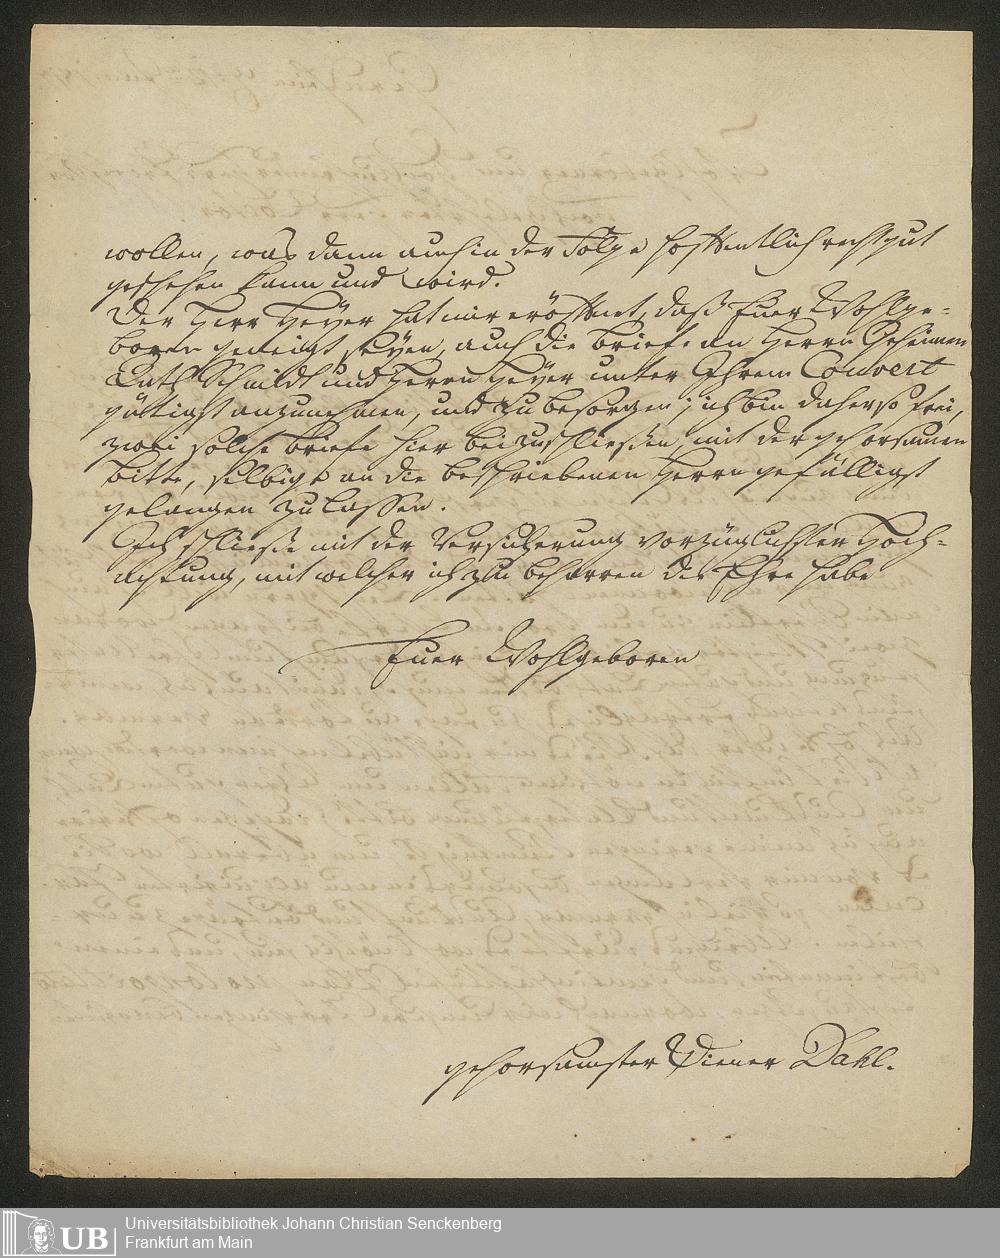 wollen, was dann auch in der Folge hoffentlich recht gut
geschehen kann und wird.
Der Herr Heyer hat mir eröffnet, daß Euer Wohlge-
boren geneigt seyen, auch die Briefe an Herrn Geheimen
Rath Schmidt und Herrn Heyer unter Ihrem Couvert
gütigst anzunehmen, und zu besorgen; ich bin daher so frei,
zwei solche Briefe hier beizuschließen, mit der gehorsamen
Bitte, selbige an die beschriebenen Herrn gefälligst
gelangen zu lassen.
Ich schließe mit der Versicherung vorzüglichster Hoch-
achtung, mit welcher ich zu beharren die Ehre habe
Euer Wohlgeboren
gehorsamster Diener Dahl.
UB
Universitätsbibliothek Johann Christian Senckenberg
Frankfurt am Main